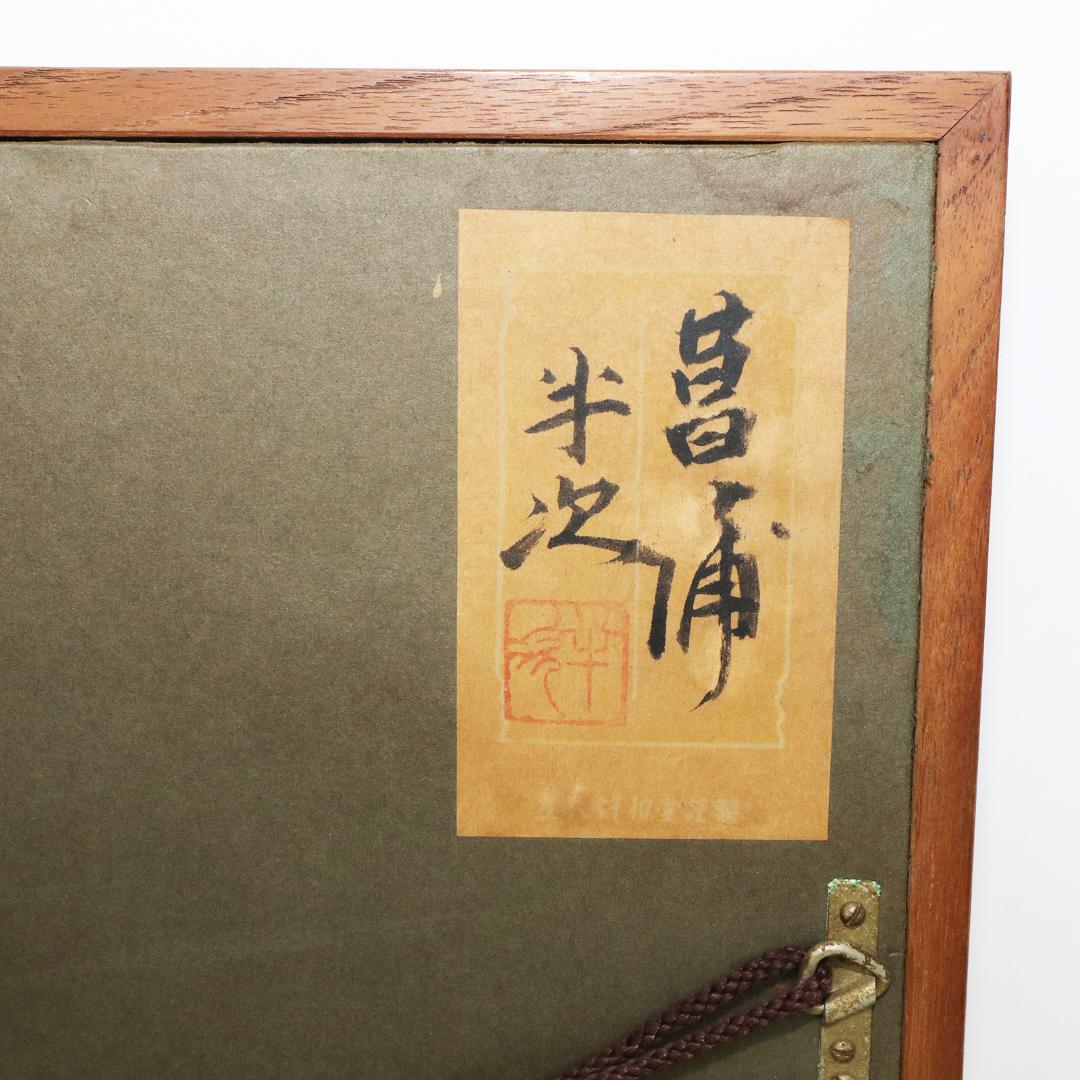 菖蒲
半次